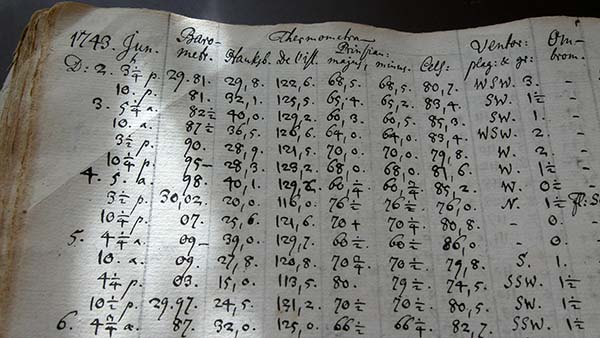 1743. Jun. Barometr. Thermometra Ventor. Ombrom.
Hauksb. de l'isl. Prinsian: majus, minus. Cels: plag: & gr:
D: 2. 3 1/2 p. 29.81. 29,8. 122,6. 68,5. 68,5. 80,7. WSW. 3. -
10. p. 81. 32,1. 125,5. 65,4. 65,2. 83,4. SW. 1 1/2 -
3. 5 1/4 a. 82 1/2 40,0. 129,2. 60,3. 60,5. 85,3. SW. 1. -
10. a. 87 1/2 36,5. 126,6. 64,0. 64,0. 83,4. WSW. 2. -
3 1/2 p. 90. 28,9. 121,5. 70,0. 70,0. 79,8. W. 2. -
10 1/4 p. 95- 28,3. 123,2. 68,0. 68,0. 81,6. W. 1 1/2 -
4. 5. a. 98. 40,1. 129,2. 60 1/4 60 85,2. W. 0 1/2 -
3 1/2 p. 30,02. 20,0. 116,0. 76 1/2 76 1/2 76,0. N. 1 1/2
10 1/4 p. 07. 25,6. 121,6. 70+ 70 1/4 80,8. - 0.
5. 4 1/4 a. 09- 39,0. 129,7. 60 1/2 60 1/2 86,0 - 0.
10. a. 09. 27,8. 120,8. 70 70 1/2 79,8. S. 1.
4 1/2 p. 03. 15,0. 113,5. 80. 79 1/2 74,5. SSW. 1 1/2
10 1/2 p. 29.97. 24,5. 121,2. 70 1/2 70 1/2 80,5. SW. 1 1/2
6. 4 a. 87. 32,0. 125,0. 66 1/2 66 1/4 82,7. SSW. 1 1/2